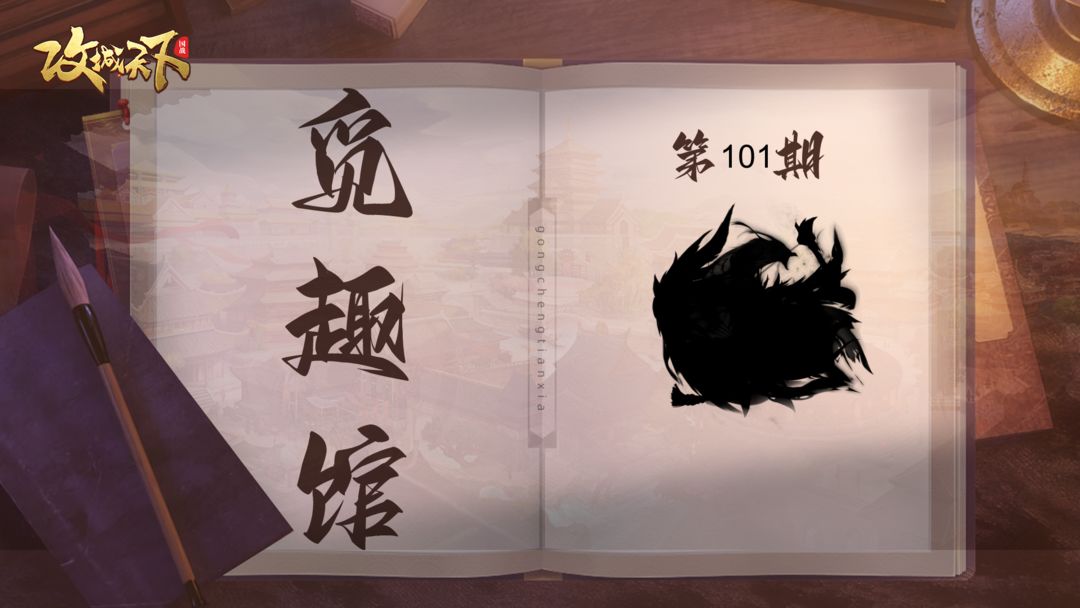 攻城天下
国战
觅趣馆
第101期
gongchengtianxia